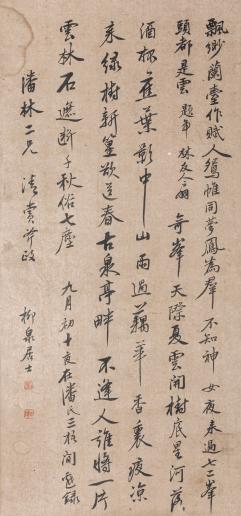 飄緲蘭臺作賦人鴛帷同夢鳳為群 不知神女夜來過七二峯
頭都是雲 題 林友人 奇峯天際夏雲開樹底星河落
酒杯蕉葉影中山雨過藕華香裏疲涼
來綠樹新篁欲送春古泉亭畔 不逢人誰將一片
雲林石遮斷千秋俗七塵 九月初十夜在潘氏三柱間遊錄
潘林二兄 清賞并政 柳泉居士